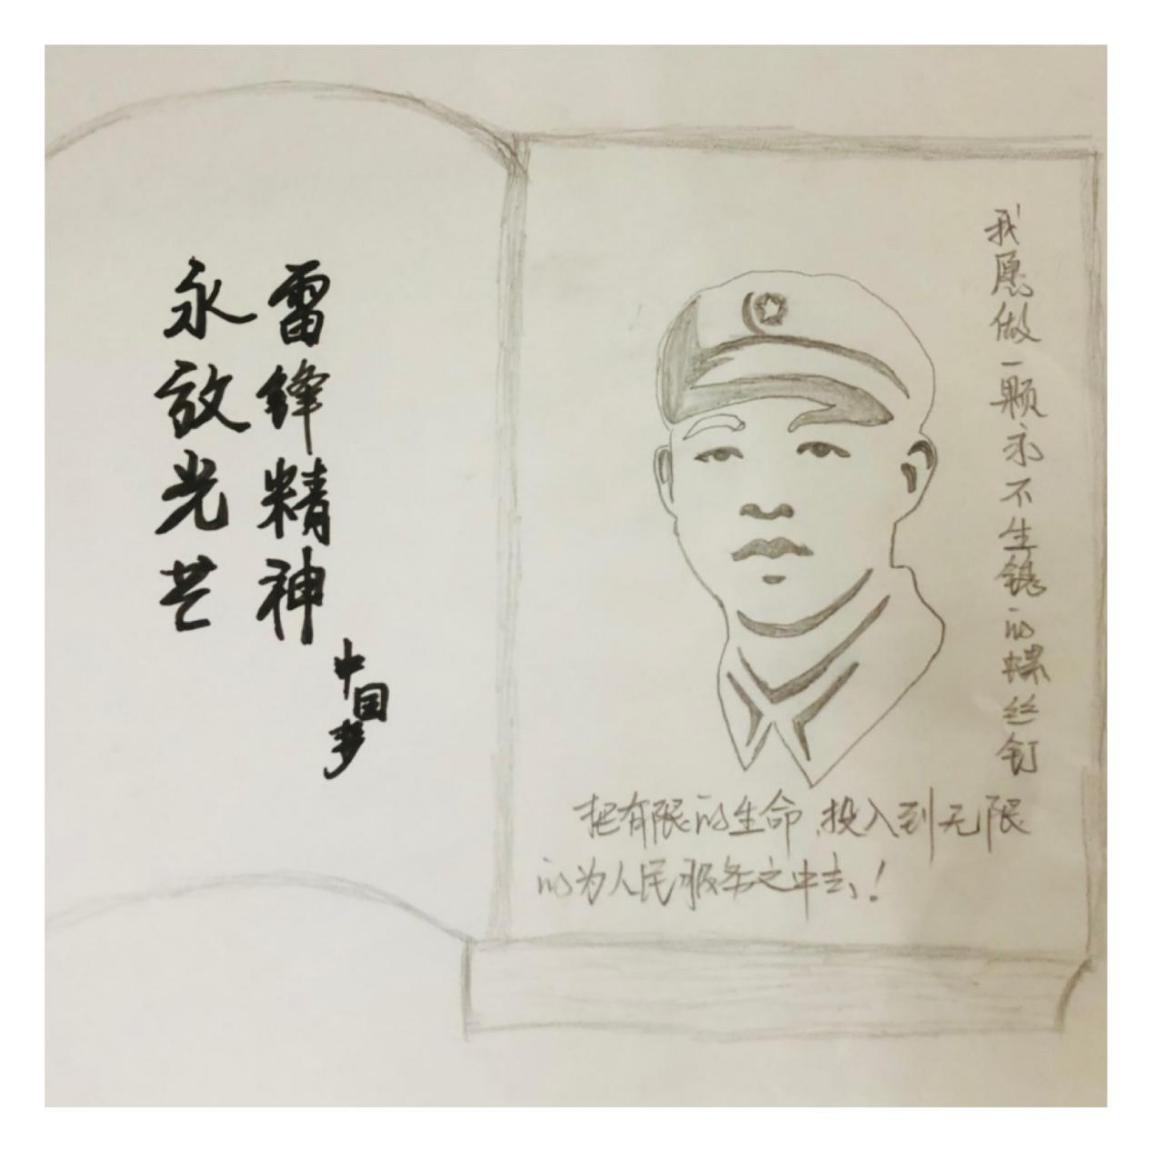 雷锋精神
永放光芒
中国梦
我愿做一颗永不生锈的螺丝钉
把有限的生命,投入到无限
的为人民服务之中去!